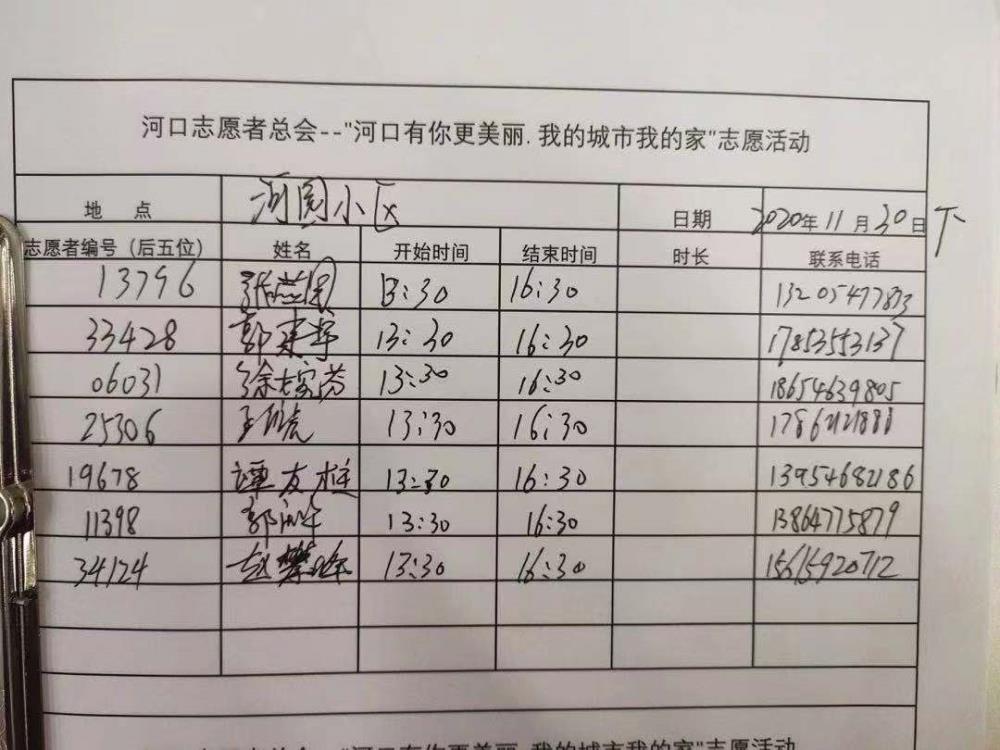 河口志愿者总会--"河口有你更美丽.我的城市我的家"志愿活动
地 点 河园小区 日期 2020年11月30日下
志愿者编号（后五位） 姓名 开始时间 结束时间 时长 联系电话
13796 13:30 16:30 13205477873
33428 郭建 13:30 16:30 17853553137
06031 徐 13:30 16:30 18654639805
25306 王 13:30 16:30
19678 谭友柱 13:30 16:30 13954682186
11398 郭 13:30 16:30 13864775879
34124 赵 13:30 16:30 15615920712
志愿者总会--"河口有你更美丽.我的城市我的家"志愿活动